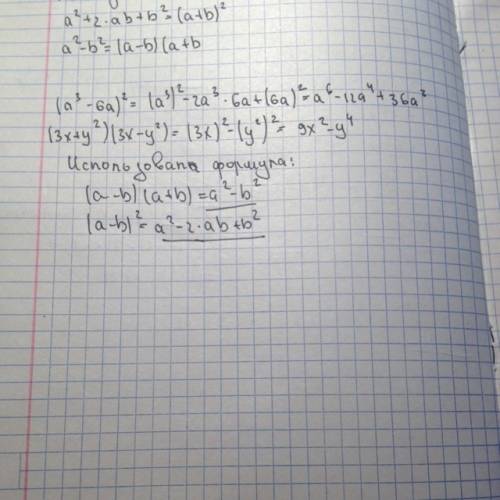 a²+2·ab+b²=(a+b)²
a²-b²=(a-b)(a+b
(a³-6a)²=(a³)²-2a³·6a+(6a)²=a⁶-12a⁴+36a²
(3x+y²)(3x-y²)=(3x)²-(y²)²=9x²-y⁴
Использована формула:
(a-b)(a+b)=a²-b²
(a-b)²=a²-2·ab+b²